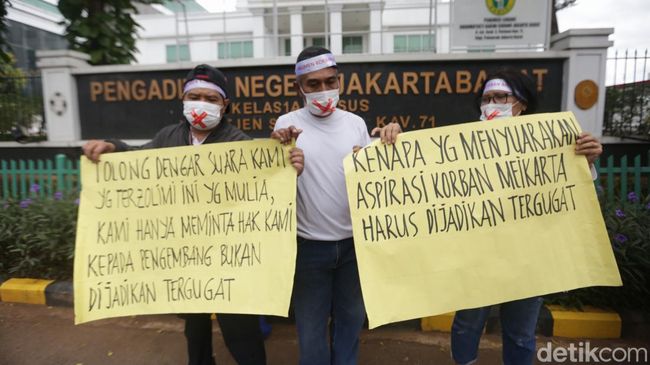 PENGADI
NEGE
JAKARTA BARAT
KELAS 1A
SUS
JEN S
KAV. 71
TOLONG DENGAR SUARA KAMI
YG TERZOLIMI INI YG MULIA,
KAMI HANYA MEMINTA HAK KAMI
KEPADA PENGEMBANG BUKAN
DIJADIKAN TERGUGAT
KENAPA YG MENYUARAKAN
ASPIRASI KORBAN MEIKARTA
HARUS DIJADIKAN TERGUGAT
detikcom